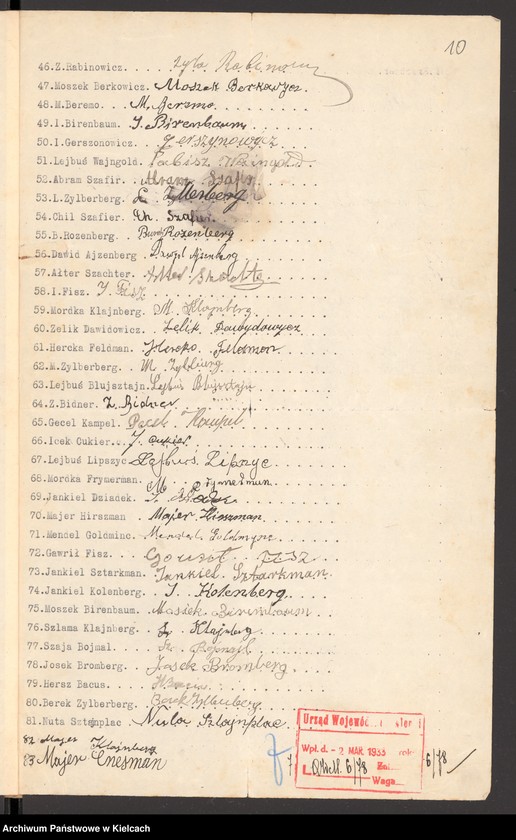 10
46.Z.Rabinowicz. . . . . Zyla Rabinowicz
47.Moszek Berkowicz. Moszek Berkowycz.
48.M.Beremo. . . M. Beremo
49.I.Birenbaum. . . I. Birenbaum
50.I.Gerszonowicz. . . Gerszynowycz
51.Lejbuś Wajngold. Wajngold
52.Abram Szafir. . . Abram Szafir
53.L.Zylberberg. Zyllerberg
54.Chil Szafier. . Ch. Szafir
55.B.Rozenberg. Rozenberg
56.Dawid Ajzenberg Dawyd Ajzenberg
57.Alter Szachter.
58.I.Fisz. I Fisz
59.Mordka Klajnberg. . M. Klajnberg
60.Zelik Dawidowicz. . Zelik Dawydowycz
61.Hercka Feldman. . Hercko Feldman
62.M.Zylberberg. . . M
63.Lejbuś Blujsztajn. Lejbuś
64.Z.Bidner. Z. Bidner
65.Gecel Kampel.
66.Icek Cukier. . I. Cukier
67.Lejbuś Lipszyc Lejbus. Lipszyc
68.Mordka Frymerman. M. Frymerman
69.Jankiel Dziadek. I.
70.Majer Hirszman . Majer Hirszman
71.Mendel Goldminc. . Mendel Goldmync
72.Gawrił Fisz. . . FISZ
73.Jankiel Sztarkman. Jankiel Sztarkman
74.Jankiel Kolenberg. . I. Kolenberg.
75.Moszek Birenbaum. . Mosiek Birenbaum
76.Szlama Klajnberg. . Sz. Klajnberg
77.Szaja Bojmal. . . Sz.
78.Josek Bromberg. . . Josek Bromberg
79.Hersz Bacus. . .
80.Berek Zylberberg. . Berek Zylberberg
81.Nuta Sztejnplac . . Nuta Sztajnplac
82 Majer Klajnberg
83 Majer Cnesman
Urząd Wojewó
Wpł. d. - 2 MAR. 1933 roku
L. 6/78 Zał.
Waga
6/78
Archiwum Państwowe w Kielcach